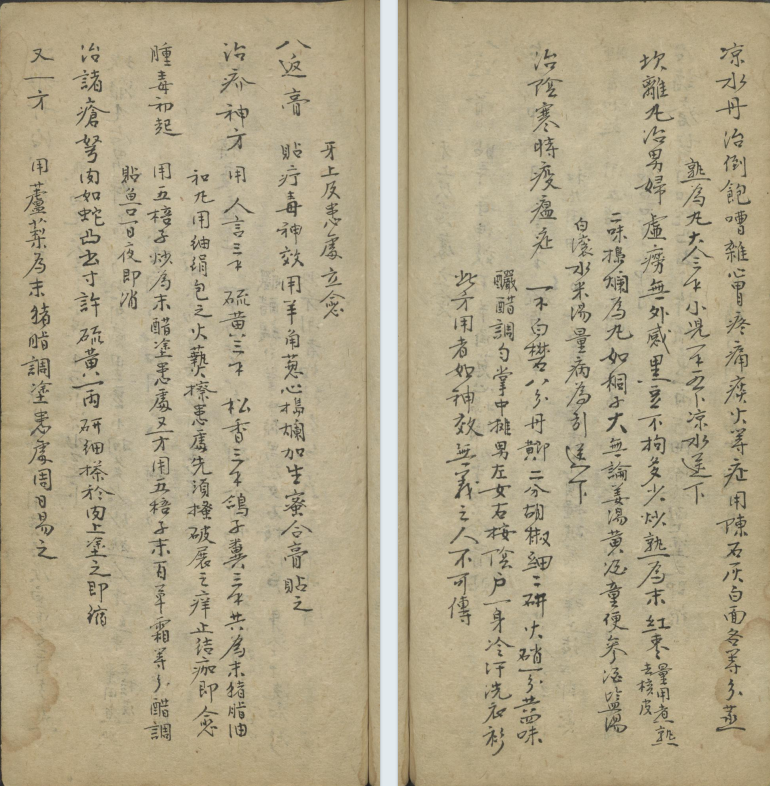 凉水丹治倒飽嘈雜心胃疼痛痰火等症用陳石灰白面各等分蒸
熟為丸大人三卞小児一卞五卜凉水送下
坎離丸治男婦虛癆無外感黑豆不拘多少炒熟為末紅枣量用煮熟去核皮
二味搗爛為丸如桐子大無論姜湯黄酒童便參酒盐湯
白滚水米湯量病為引送下
治陰寒時疫瘟症 一不白礬八分丹二分胡椒細二研火硝一分共四味
釅醋調勻掌中擁男左女右按陰户一身冷汗洗衣衫
此方用者如神效無義之人不可傳
牙上及患處立愈
八返膏 貼疔毒神效用羊角葱心搗爛加生蜜合膏貼之
治疥神方 用人言三卞硫黄三卞松香三卞鴿子糞三卞共為末猪脂油
和丸用紬絹包之火爇擦患處先須搔破展之痒止結痂即愈
腫毒初起 用五棓子炒為末醋塗患處又方用五棓子末百草霜等分醋調
貼魚口一日夜即消
治諸瘡弩肉如蛇凸出寸許 硫黄一両研細搽於肉上塗之即縮
又一方 用藘藜為末猪脂調塗患處周日易之